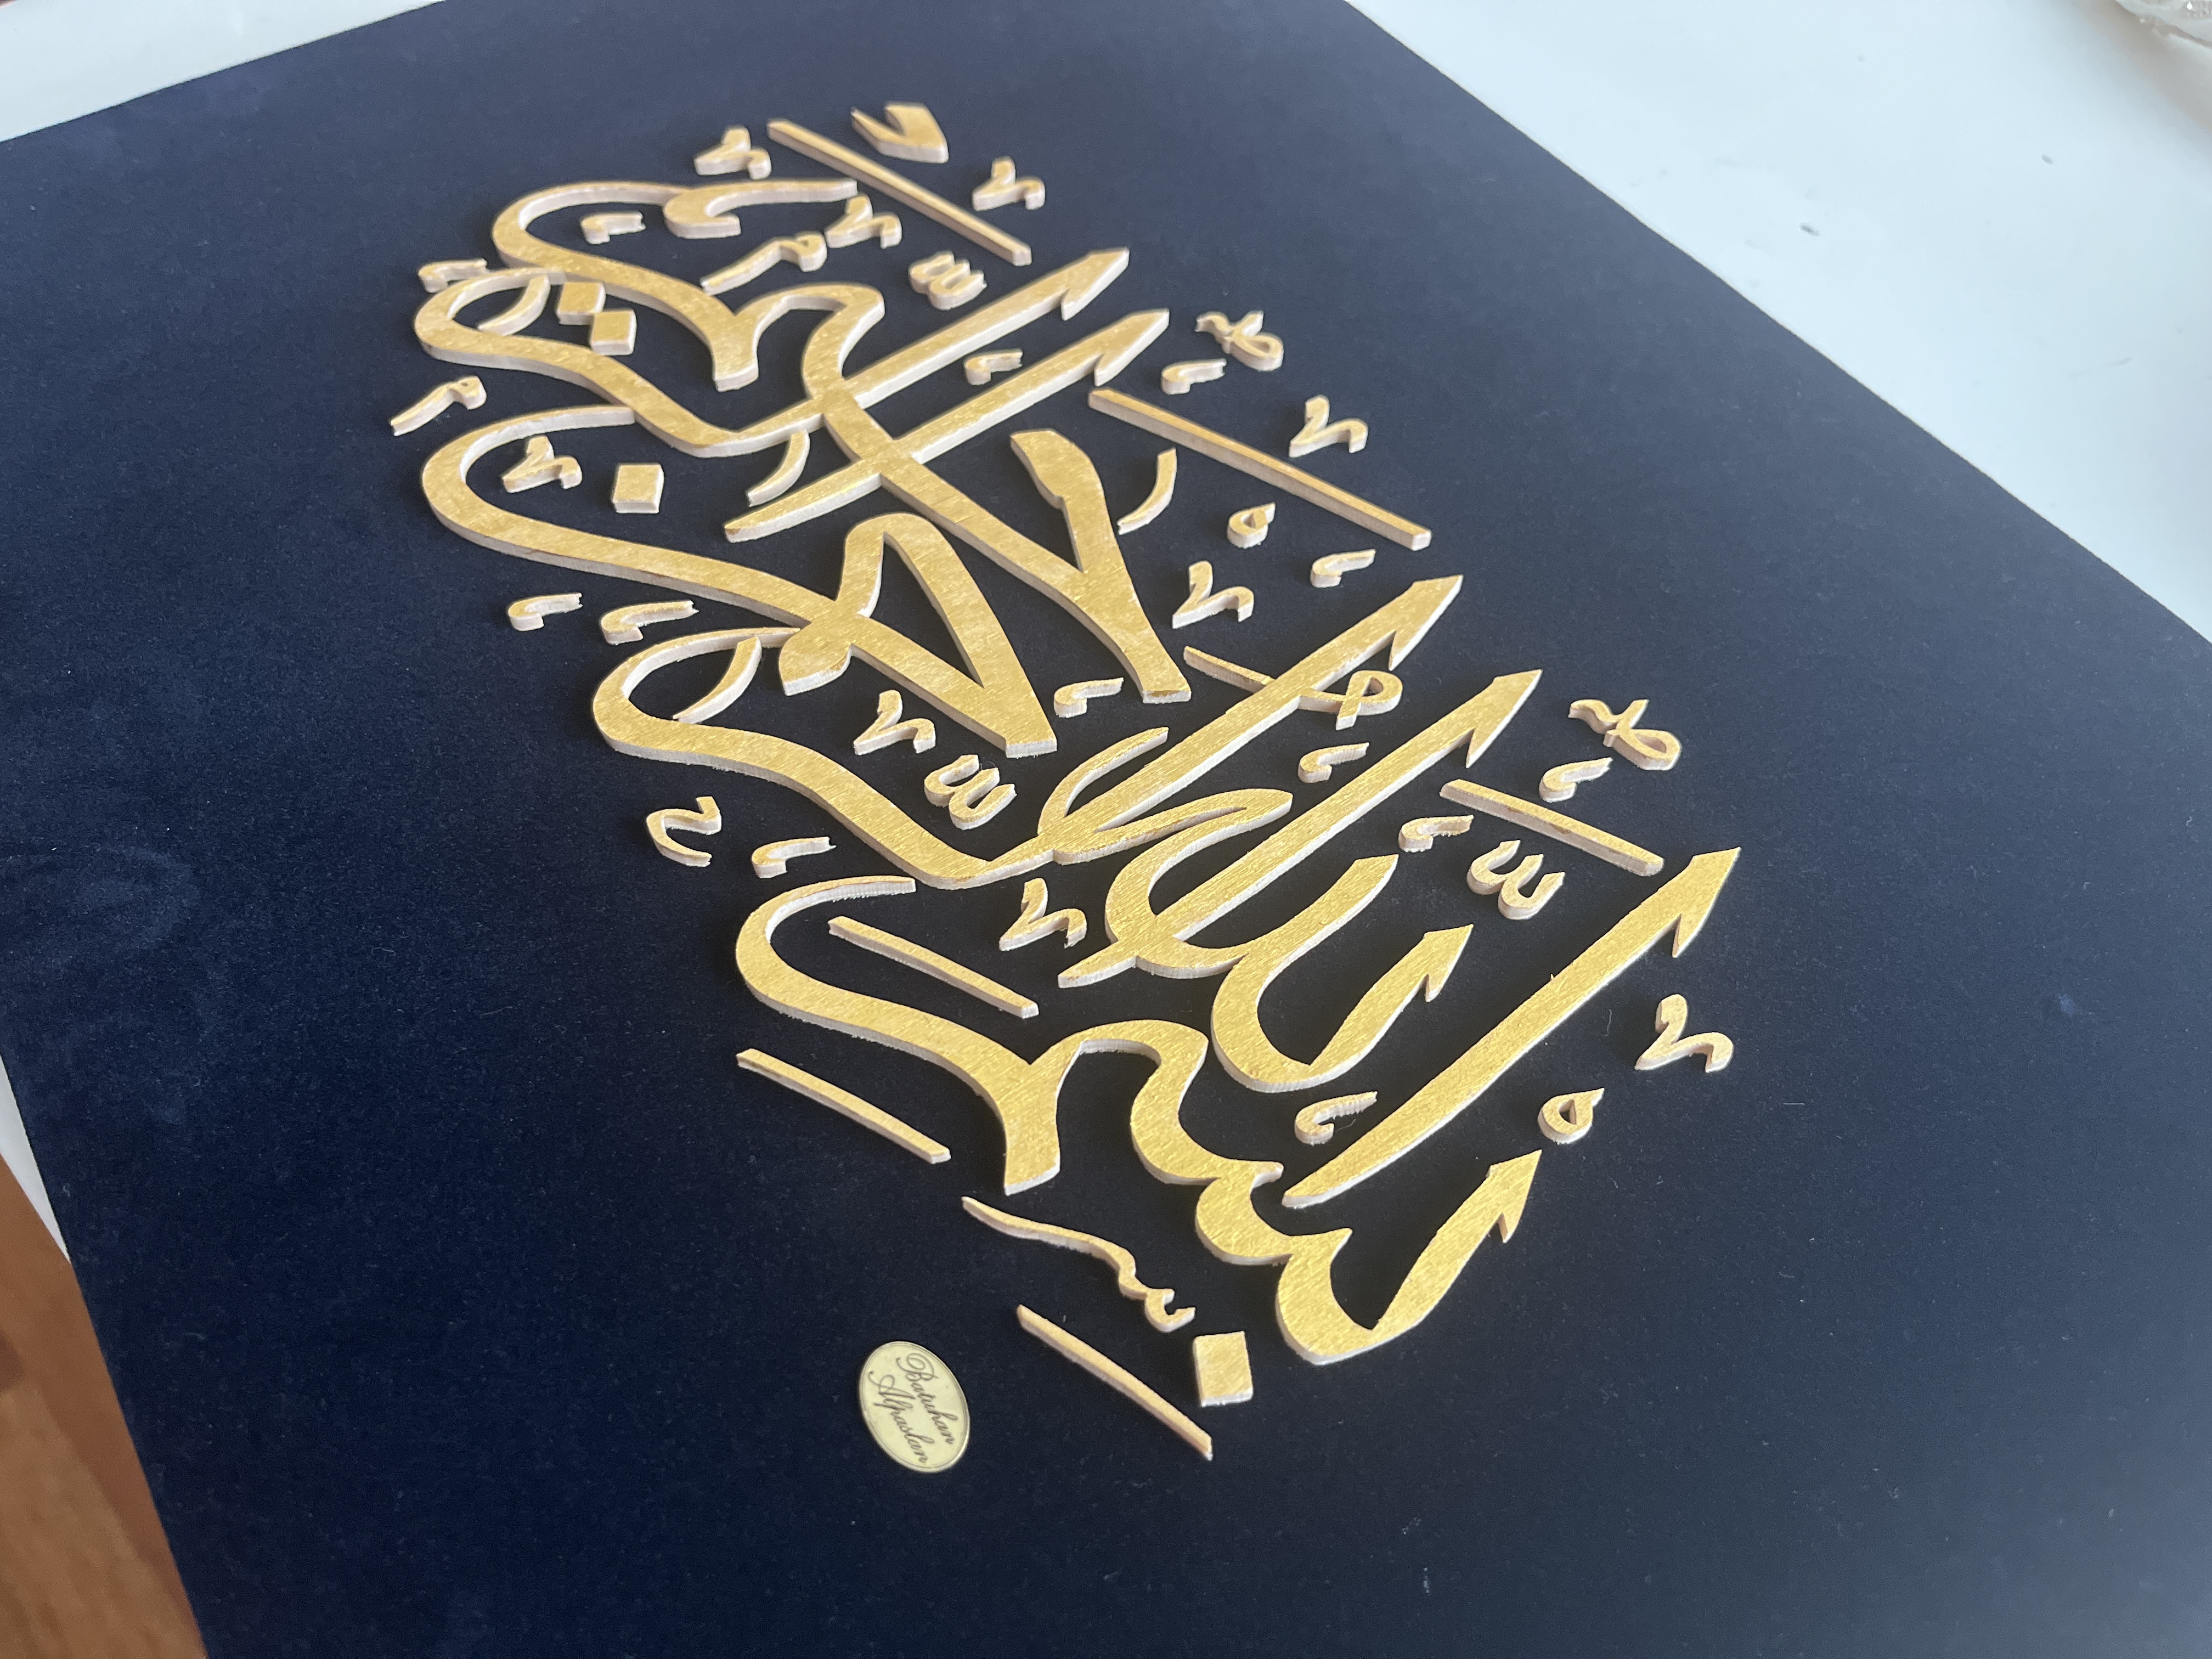 بسم الله الرحمن الرحيم
Batuhan
Alpaslan